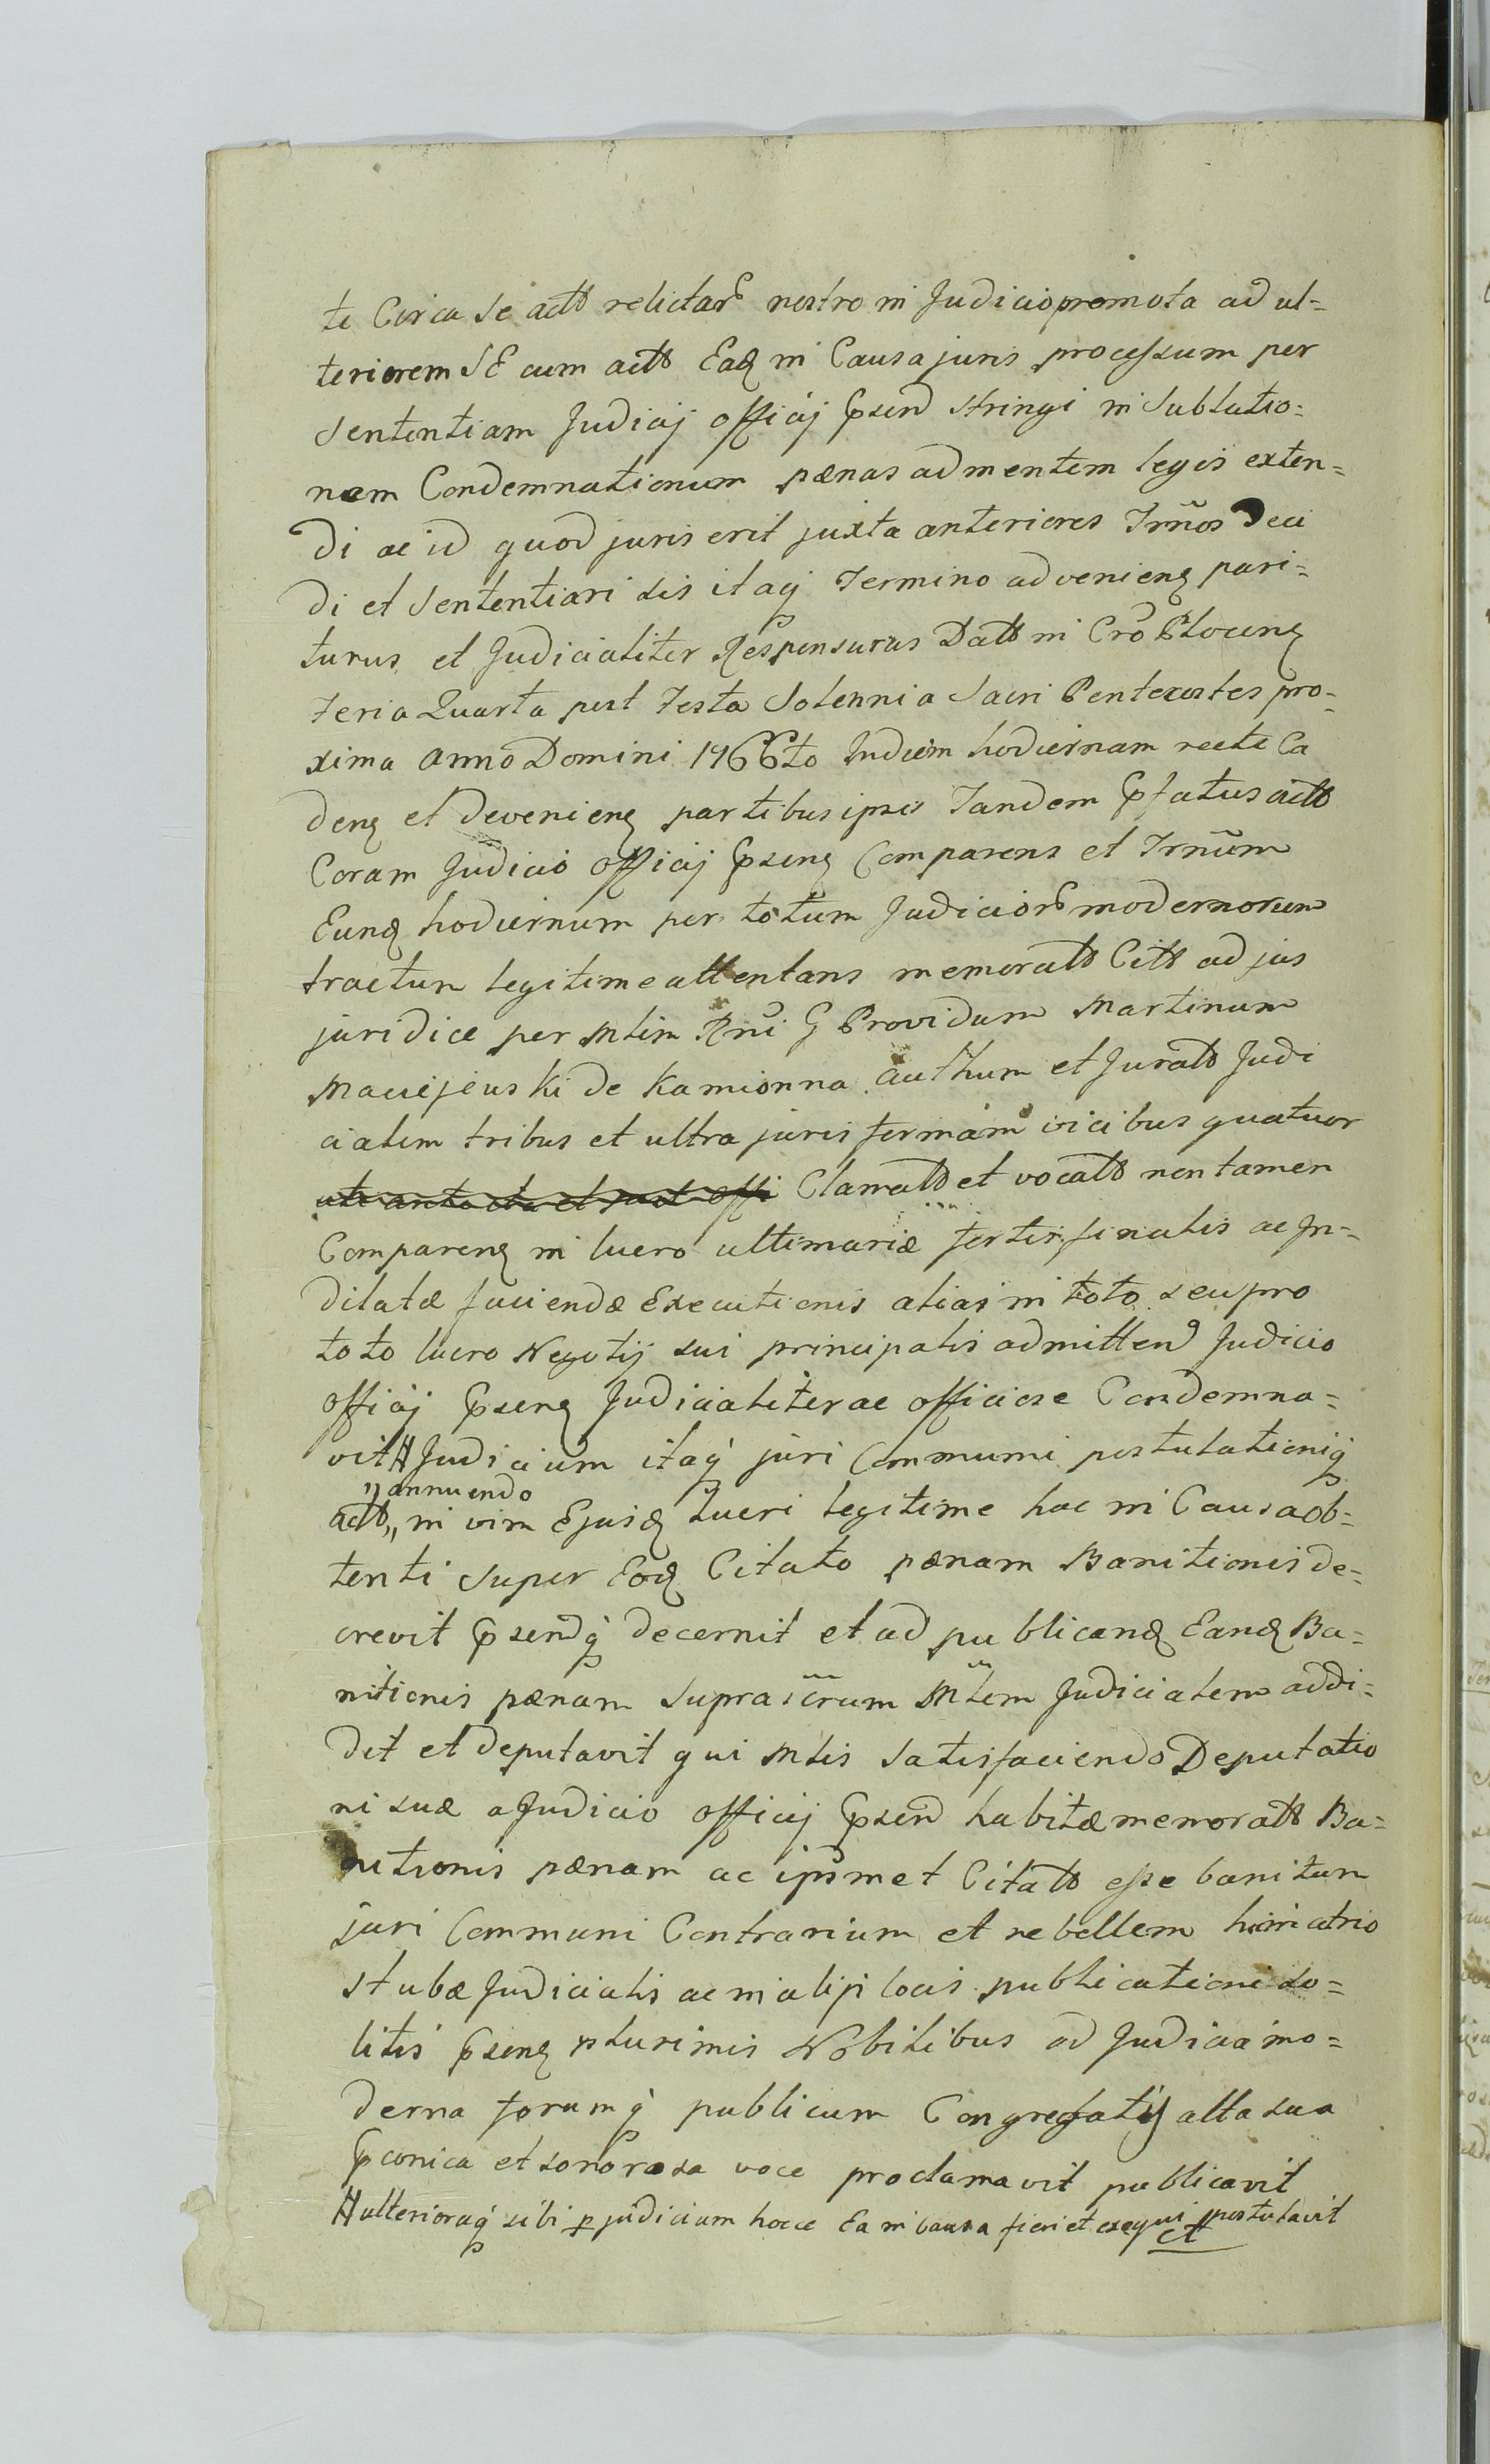 te Circa Se actt relictar nostro in Judicio promota ad ul=
teriorem SE cum actt Eadq in Causa juris processum per
Sententiam Judicij officij psend stringi in Sublatio=
nem Condemnationum pænas ad mentem legis exten=
di ac id quod juris erit juxta anteriores Trños Deci
di et Sententiari sis itaq Termino advenienq pari=
turus et Judicialiter Responsurus Datt in Cro Plocenq
Feria Quarta post Festa Solennia Sacri Pentecostes pro=
xima Anno Domini 1766to In diem hodiernam recte Ca
denq et Devenienq partibus ipsis Tandem pfatus actt
Coram Judicio officij psenq Comparens et Trñum
Eunq hodiernum per totum Judicior modernorum
tractum legitime attentans memoratt Citt ad jus
juridice per Mlem Rni G Providum Martinum
Maciejewski de Kamionna Authum et Juratt Judi
cialem tribus et ultra juris formam vicibus quatuor
Clamatt et vocatt non tamen
Comparenq in lucro ultimariæ fortis finalis ac In=
dilatæ faciendæ Executionis alias in toto seu pro
toto lucro Negotij sui principalis admitten Judicio
officij psenq Judicialiter ac officiose Condemna=
vit # Judicium itaq juri Communi postulationiq
"annuendo
actt,, in vim Ejusdq lucri legitime hac in Causa ob=
tenti Super Eodq Citato pænam Banitionis de=
crevit psendq decernit et ad publicandq Eandq Ba=
nitionis pænam Suprascrum Mlem Judicialem addi=
dit et deputavit qui Mlis Satisfaciendo Deputatio
ni suæ a Judicio officij psend habitæ memoratt Ba=
nitionis pænam ac ipsmet Citatt esse banitum
juri Communi Contrarium et rebellem hinc atrio
stubæ Judicialis ac in alijs locis publicationi so=
litis psenq plurimis Nobilibus ad Judicia mo=
derna forumq publicum Congregatis alta sua
pconica et sonorosa voce proclamavit publicavit
# ulterioraq sibi p judicium hocce Ea in causa fieri et exequi postulavit